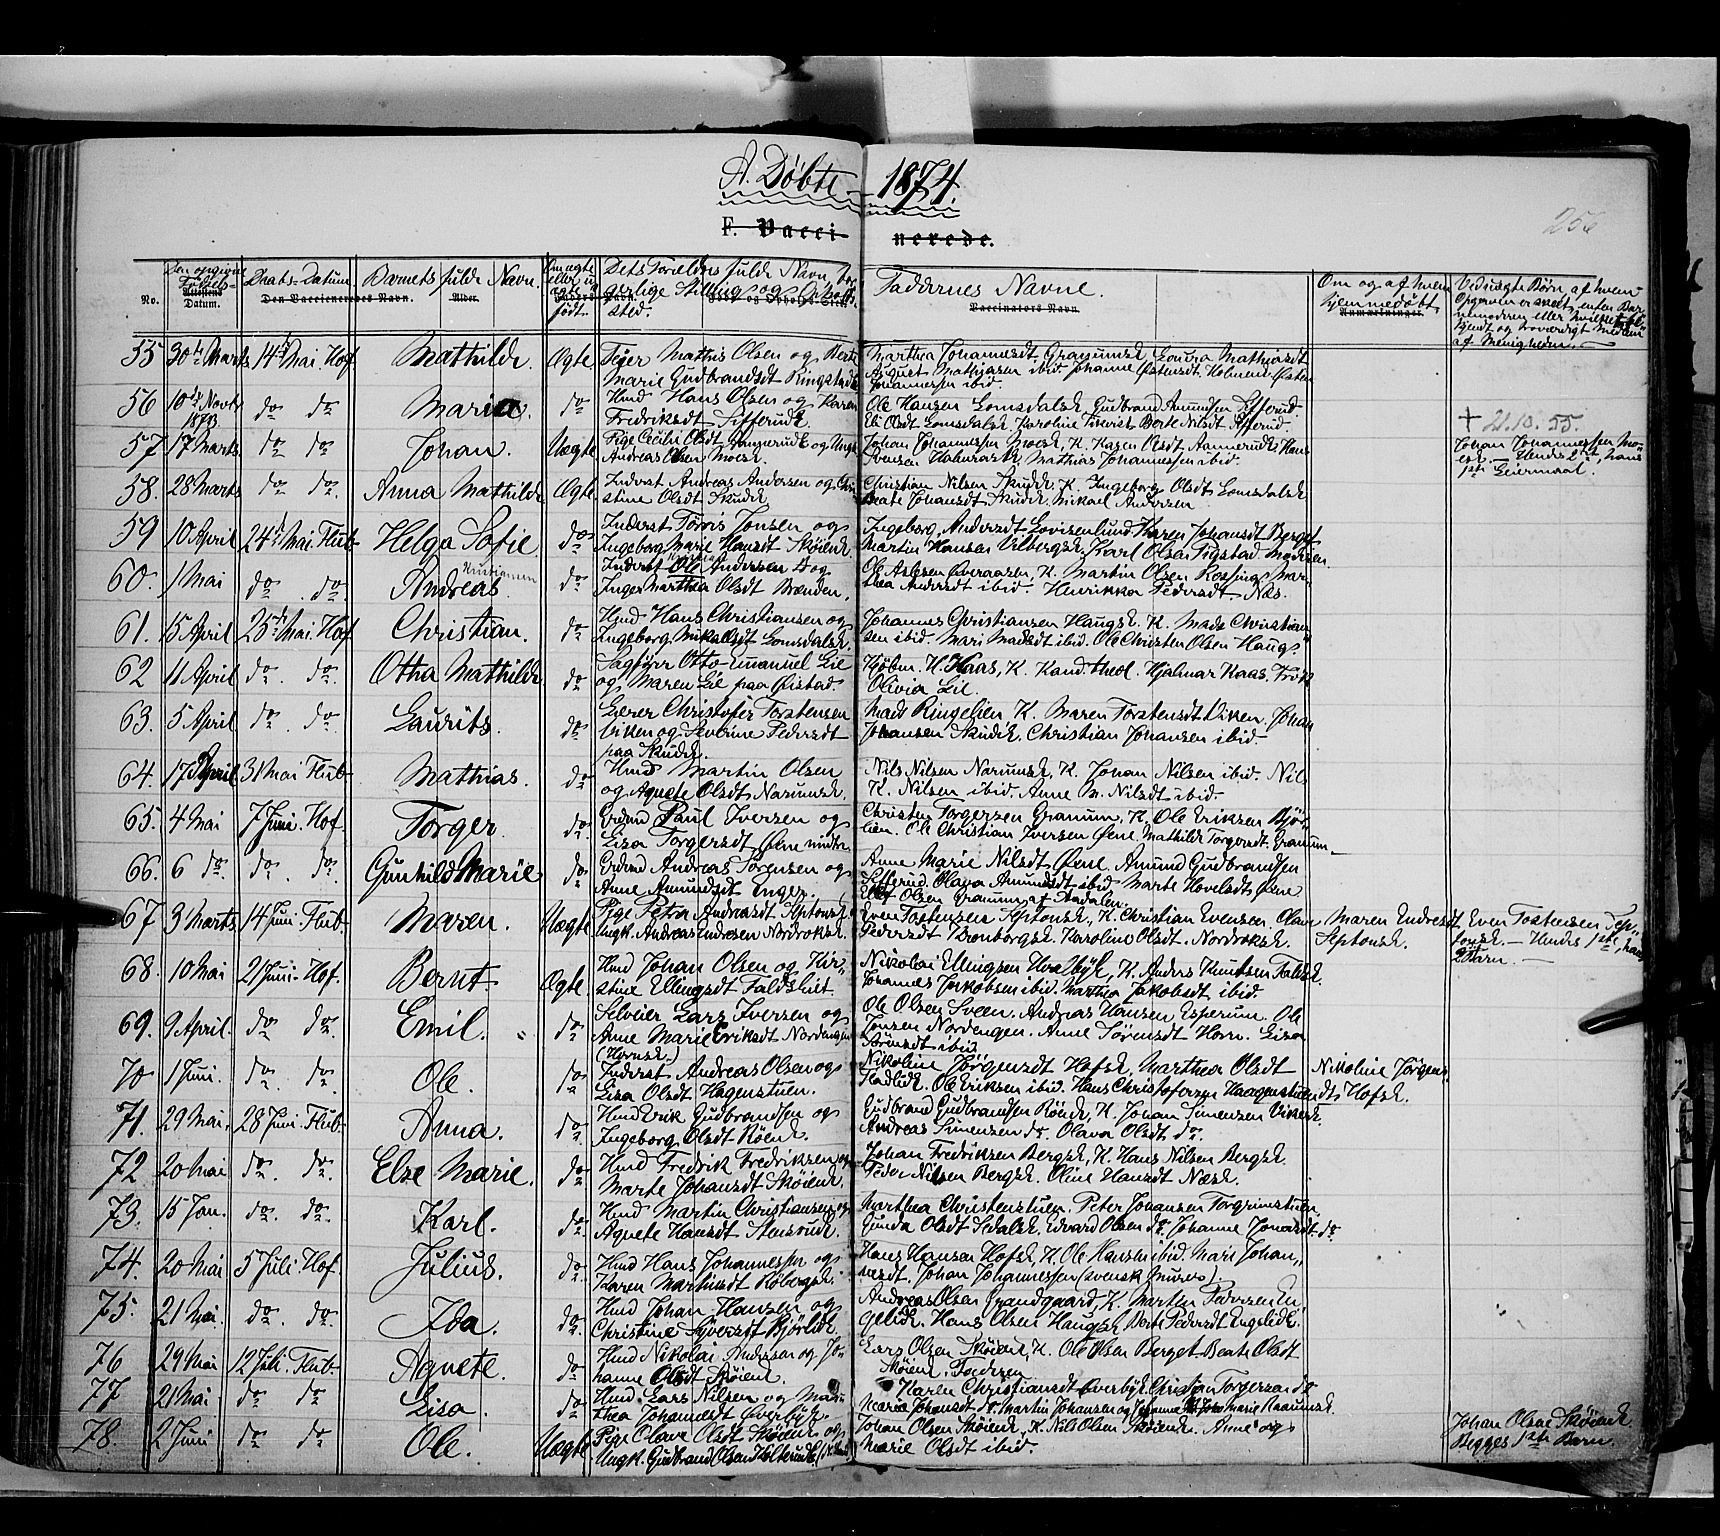 A. Døbte 1874.
F. Vaccinerede.
256
No. Den opgivne Fødsels- Datum. Daabs-Datum Barnets fulde Navn. Om ægte eller uægte født.
Den Vaccineredes Navn. Alder.
Dets Forældres fulde Navn, borgerlige Stilling og Opholdssted.
Faddernes Navne.
Vaccinators Navn.
Om og af hvem hjemmedøbt
Anmærkninger.
Ved uægte Børn af hvem Opgaven er skeet, enten Barnemoderen eller hvilket bekjendt og troværdigt Medlem af Menigheden.
55 30te Marts 14de Mai. Hof. Mathilde. Ægte Mathis Olsen og Berte
Marie Gudbrandsdt Ringstad
Marthea Johannesdt Granumsk. Lovisa Mathisdt
August Mathisen ibid. Johanne Østensdt. Helmen. Østen
Johannessen ibid.
56 10de Novbr 1873 do do Maria. do Hmd Hans Olsen og Karen
Fredriksdt Sifferud.
Ole Hansen Lomsdalsk. Gudbrand Amundsen Sifferud
Eli Olsdt Lomsdalsk. Karoline Berte Nilsdt. Sifferud.
† 21.10.55.
57 17 Marts do do Johan. Uægte Pige Cecilie Olsdt og Ungk.
Andreas Olsen Moesk.
Johan Johannessen Moesk. K. Karen Olsdt Hans
Svensen Mathias Johannessen ibid.
Johan Johannessen Moesk. Hendes 2det, hans
1ste Leiermaal.
58. 28 Marts do do Anna Mathilde Ægte Inderst Andreas Andersen og Christine
Olsdt Skudek.
Christian Nilsen Skudek. K. Ingeborg Olsdt Lomsdalsk
Beate Johansdt Skudek. Mikael Andersen
59 10 April 24de Mai Flub. Helga Sofie do Inderst Torris Jonsen og
Ingeborg Marie Hansdt Skøiensk.
Ingeborg Andersdt Lovisenlund. Karen Johansdt Berget
Martin Hansen Vilbergsk. Karl Olsen Madsen
60. 1 Mai do do Andreas. Kristianen do Inderst Ole Andersen og
Inger Marthea Olsdt Brænden.
Ole Aslesen K. Martin Olsen Rosting. Marthea
Andersdt ibid. Henrikka Pedersdt. Næs.
61. 15 April 25de Mai. Hof. Christian. do Hmd Hans Christiansen og
Ingeborg Mikaelsdt Lomsdalsk.
Johannes Christiansen Haugsk. K. Mads Christiansen
ibid. Mari Madsdt ibid. Ole Christen Olsen Haugs
62 11 April do do Otha Mathilde do Sagfører Otto Emanuel Lie
og Maren Lie paa Øistad.
Kjøbm. H. Haas, K. Kand. theol. Hjalmar Kaas. Frøk
Olivia Lie.
63. 5 April do do Laurits. do Lærer Christofer Torstensen
Viken og Severine Pedersdt
paa Skudek.
Mads Ringelien K. Maren Torstensdt Viken. Johan
Johansen Skudek. Christian Johansen ibid.
64. 17 April 31 Mai Flub. Mathias. do Hmd Martin Olsen
og Agnete Olsdt Narumsk.
Nils Nilsen Narumsk, K. Johan Nilsen ibid. Nil
K. Nilsen ibid. Anne M. Nilsdt ibid.
65. 4 Mai 7 Juni. Hof Torger. do Grdmd Paul Iversen og
Lisa Torgersdt Øine midtre
Christen Torgersen Granum, K. Ole Eriksen Bjørlien.
Ole Christian Iversen Øine. Mathilde Torgersdt. Granum
66. 6 do do do Gunhild Marie do Grdmd Andreas Sørensen og
Anne Amundsdt Enger.
Anne Marie Nilsdt Øine. Amund Gudbrandsen
Sifferud. Olava Amundsdt ibid Marte Hovelsdt Øine
Olsen Granum af Aadalen.
67 3 Marts 14 Juni Flub. Maren. Uægte Pige Petra Andreasdt Septonsk.
Ungk. Andreas Endresen Nordroksk.
Even Tostensen Septonsk. K. Christian Evensen. Olava
Pedersdt Tronborgsk. Karoline Olsdt. Nordroksk.
Maren Endresdt
Septonsk.
Even Tostensen Septonsk. – Hendes 1ste, hans
2det Barn. –
68. 10 Mai 21 Juni. Hof. Bernt. Ægte Hmd Johan Olsen og Kirstine
Ellingsdt Faldshiet.
Nikolai Ellingsen Hvalbyk, K. Anders Knutsen Faldsk.
Johannes Jakobsen ibid. Marthea Jakobsdt ibid.
69. 9 April. do do Emil. do Selveier Lars Iversen og
Anne Marie Eriksdt Nordengen
(Hornsk.)
Ole Olsen Sveen. Andreas Hansen Esperum. Ole
Jonsen Nordengen. Anne Sørensdt Horn. Lisa
Sørensdt ibid
70 1 Juni. do do Ole. do Inderst Andreas Olsen og
Lisa Olsdt Hagenstuen.
Nikoline Jörgensdt Hofsk. Marthea Olsdt
Ole Eriksen ibid. Hans Christofersen Haagenstuen
Nikoline Jörgensdt
Hofsk.
71. 29 Mai. 28 Juni Flub. Anna. do Hmd Erik Gudbrandsen og
Ingeborg Olsdt Röensk.
Gudbrand Gudbrandsen Röensk, K. Johan Simensen Vikersk
Andreas Simensen do. Olava Olsdt do.
72 20 Mai do do Else Marie. do Hmd Fredrik Fredriksen og
Marte Johansdt Skøiensk.
Johan Fredriksen Bergsk. K. Hans Nilsen Bergsk.
Peder Nilsen Bergsk. Oline Hansdt Næsk.
73. 15 Jan. do do Karl. do Hmd Martin Christiansen og
Agnete Hansdt Stensrudk.
Marthea Christenstuen. Peter Johansen Torgrimstuen
Gunda Olsdt Sedalsk. Edvard Olsen do. Johanne Jonasdt. do
74. 20 Mai 5 Juli. Hof. Julius. do Hmd Hans Johannessen og
Karen Martinsdt Robergsk.
Hans Hansen Hofsk, K. Ole Hansen ibid. Mari Johannesdt.
Johan Johannessen (svensk Murer).
75. 21 Mai. do do Ida. do Hmd Johan Hansen og
Christine Syversdt Bjørlidk.
Andreas Olsen Grandgaard, K. Martin Pedersen Engelidk.
Hans Olsen Haugsk Berte Pedersdt Engelidk.
76 29 Mai 12 Juli. Flub. Agnete do Hmd Nikolai Andersen og Johanne
Olsdt Skøiensk.
Lars Olsen Skøiensk, K. Ole Olsen Berget. Beate Olsdt
Skøiensk.
77 21 Mai do do Lisa. do Hmd. Lars Nilsen og Marthea
Johannesdt Overbyk.
Karen Christiansdt Overbyk. Christian Torgersen do
Maria Johansdt do. Martin Johansen og Marie Raaumsk.
78. 2 Juni do do Ole. Uægte Pige Olava Olsdt Skøiensk og
Ungk. Gudbrand Olsen Holterudk.
Johan Olsen Skøiensk, K. Nils Olsen Skøiensk. Anne og
Marie Olsdt ibid.
Johan Olsen Skøiensk
Begges 1ste Barn.